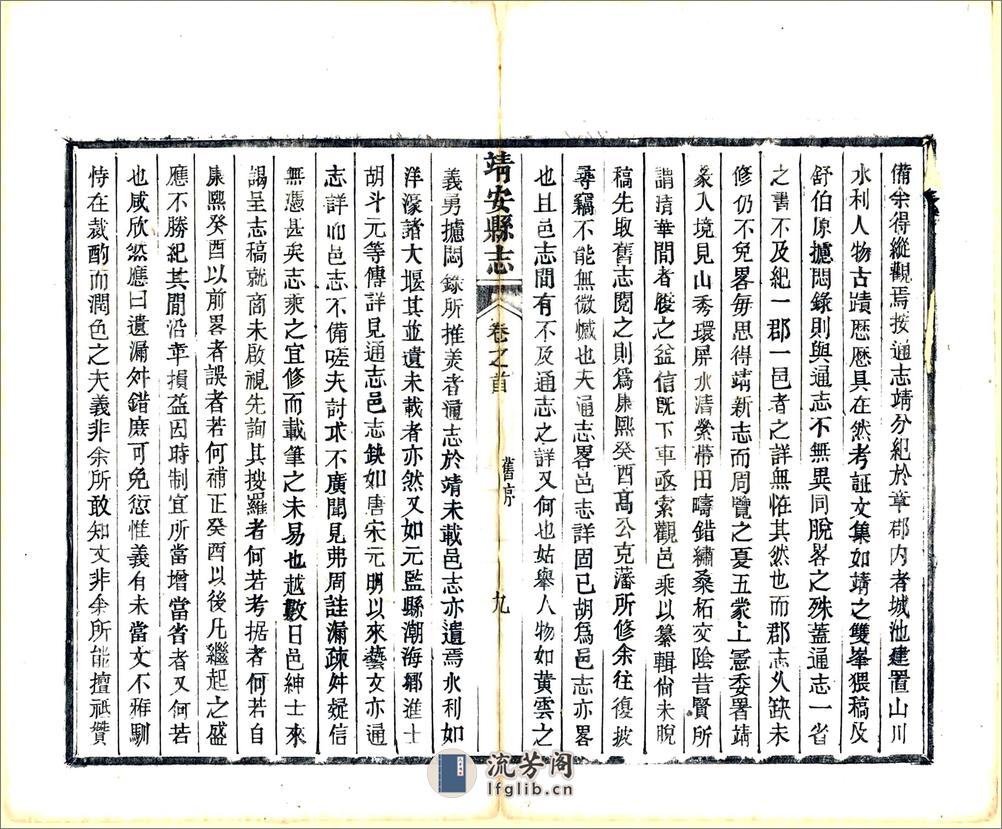 備余得縱觀焉按通志靖分紀於章郡內者城池建置山川
水利人物古蹟歷歷具在然考証文集如靖之雙峯猥稿及
舒伯原攄悶錄則與通志不無異同脫畧之殊蓋通志一省
之書不及紀一郡一邑者之詳無恠其然也而郡志久缺未
修仍不免畧每思得靖新志而周覽之夏五蒙上憲委署靖
篆入境見山秀環屏水清縈帶田疇錯繡桑柘交陰昔賢所
謂清華間者殷之益信旣下車亟索觀邑乘以纂輯尙未脫
稿先取舊志閱之則爲康熙癸酉高公克藩所修余往復披
尋竊不能無微憾也夫通志畧邑志詳固已胡爲邑志亦畧
也且邑志間有不及通志之詳又何也姑舉人物如黃雲之
靖安縣志 卷之首 舊序 九
義男攄悶錄所推美者通志於靖未載邑志亦遺焉水利如
洋濠諸大堰其並遺未載者亦然又如元監縣潮海鄉進士
胡斗元等傳詳見通志邑志缺如唐宋元明以來藝文亦通
志詳而邑志不備嗟夫討求不廣聞見弗周詿漏疎舛疑信
無憑甚矣志乘之宜修而載筆之未易也越數日邑紳士來
謁呈志稿就商未啟視先詢其搜羅者何若考据者何若自
康熙癸酉以前畧者誤者若何補正癸酉以後凡繼起之盛
應不勝紀其間沿革損益因時制宜所當增當省者又何若
也咸欣然應曰遺漏舛錯庶可免愆惟義有未當文不雅馴
恃在裁酌而潤色之夫義非余所敢知文非余所能擅祇贊
流芳阁
lfglib.cn